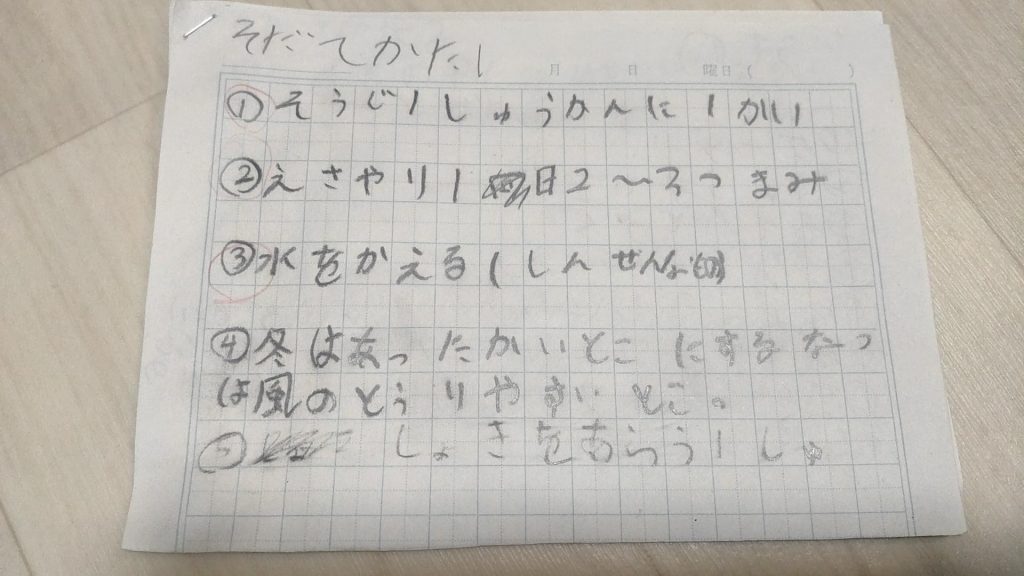 そだてかた1
月 日 曜日( )
①そうじ1しゅうかんに1かい
②えさやり1日2～3つまみ
③水をかえる(しんせんな
④冬はあったかいとこにするなつ
は風のとうりやすいとこ。
⑤しょきをもらう1しゅ